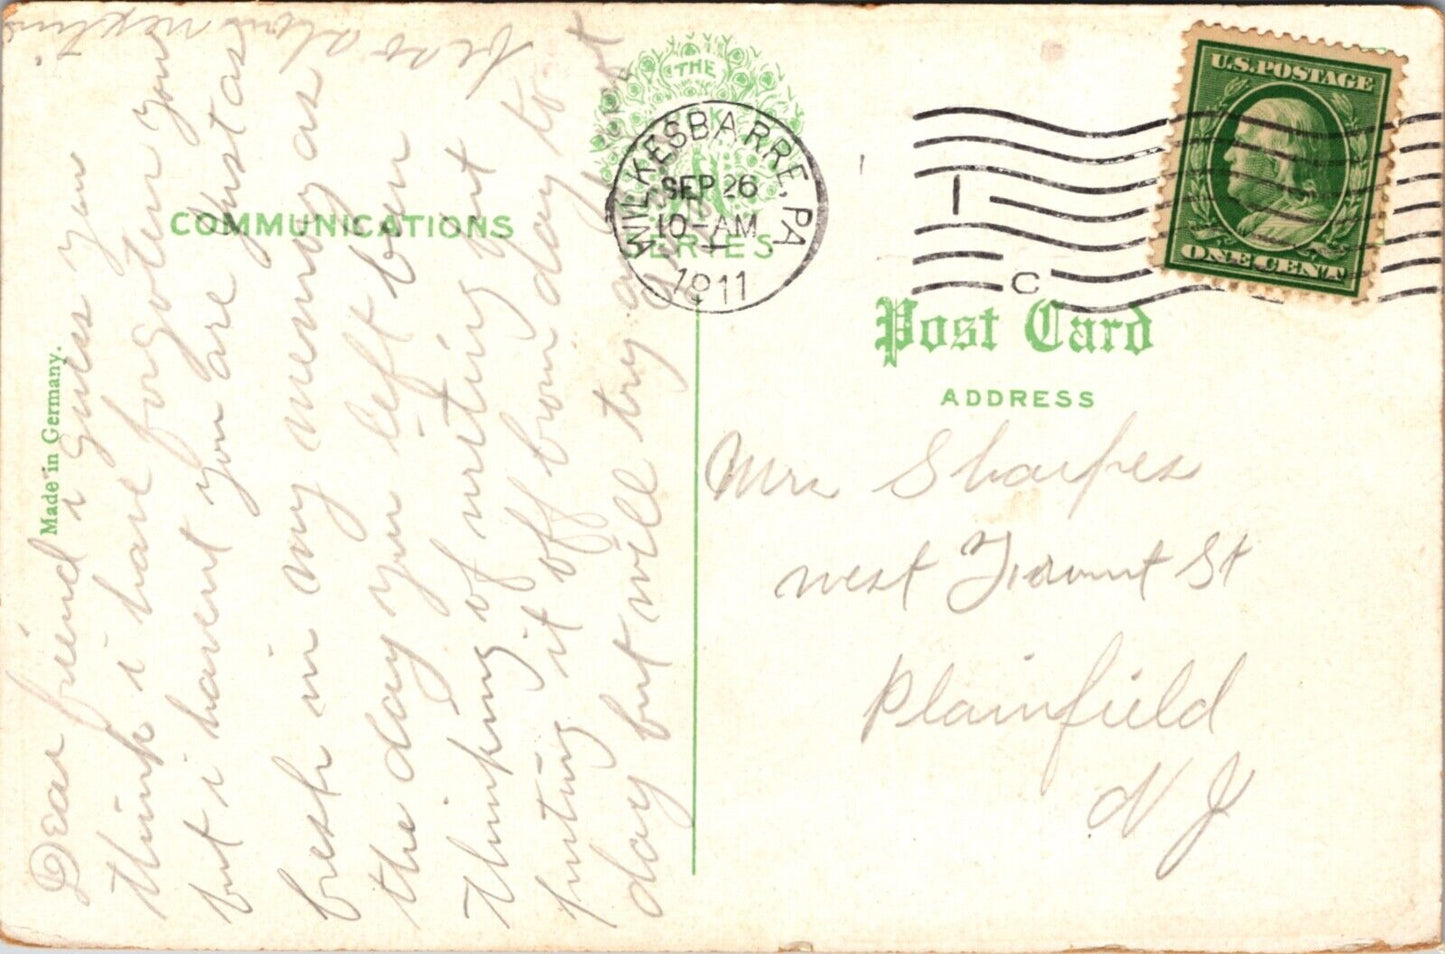 Dear friend i guess you
think i have forgoten you
but i havent you are just as
fresh in my memory as
the day you left been
thinking of writing but
puting it off from day to
day but will try and not
next time
Made in Germany.
COMMUNICATIONS
THE
SERIES
WILKESBARRE, PA
SEP 26
10-AM
1911
1
C
U.S. POSTAGE
ONE CENT
Post Card
ADDRESS
Mrs Sharpes
west Front St
Plainfield
N J